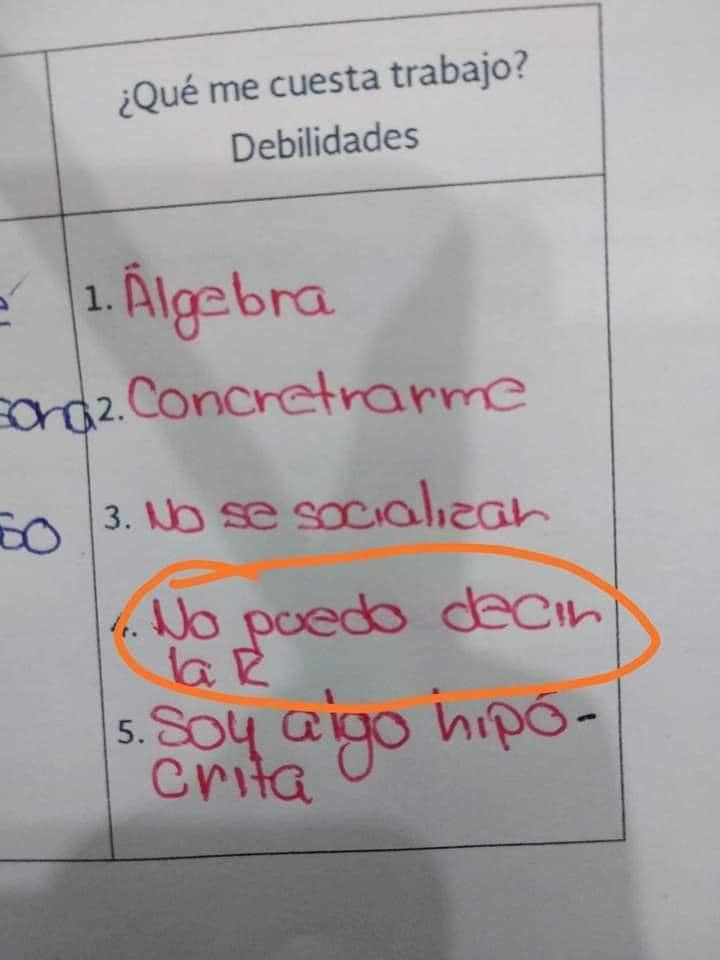 ¿Qué me cuesta trabajo?
Debilidades
1. Álgebra
2. Concretrarme
3. No se socializar
4. No puedo decir
la R
5. Soy algo hipó-
crita